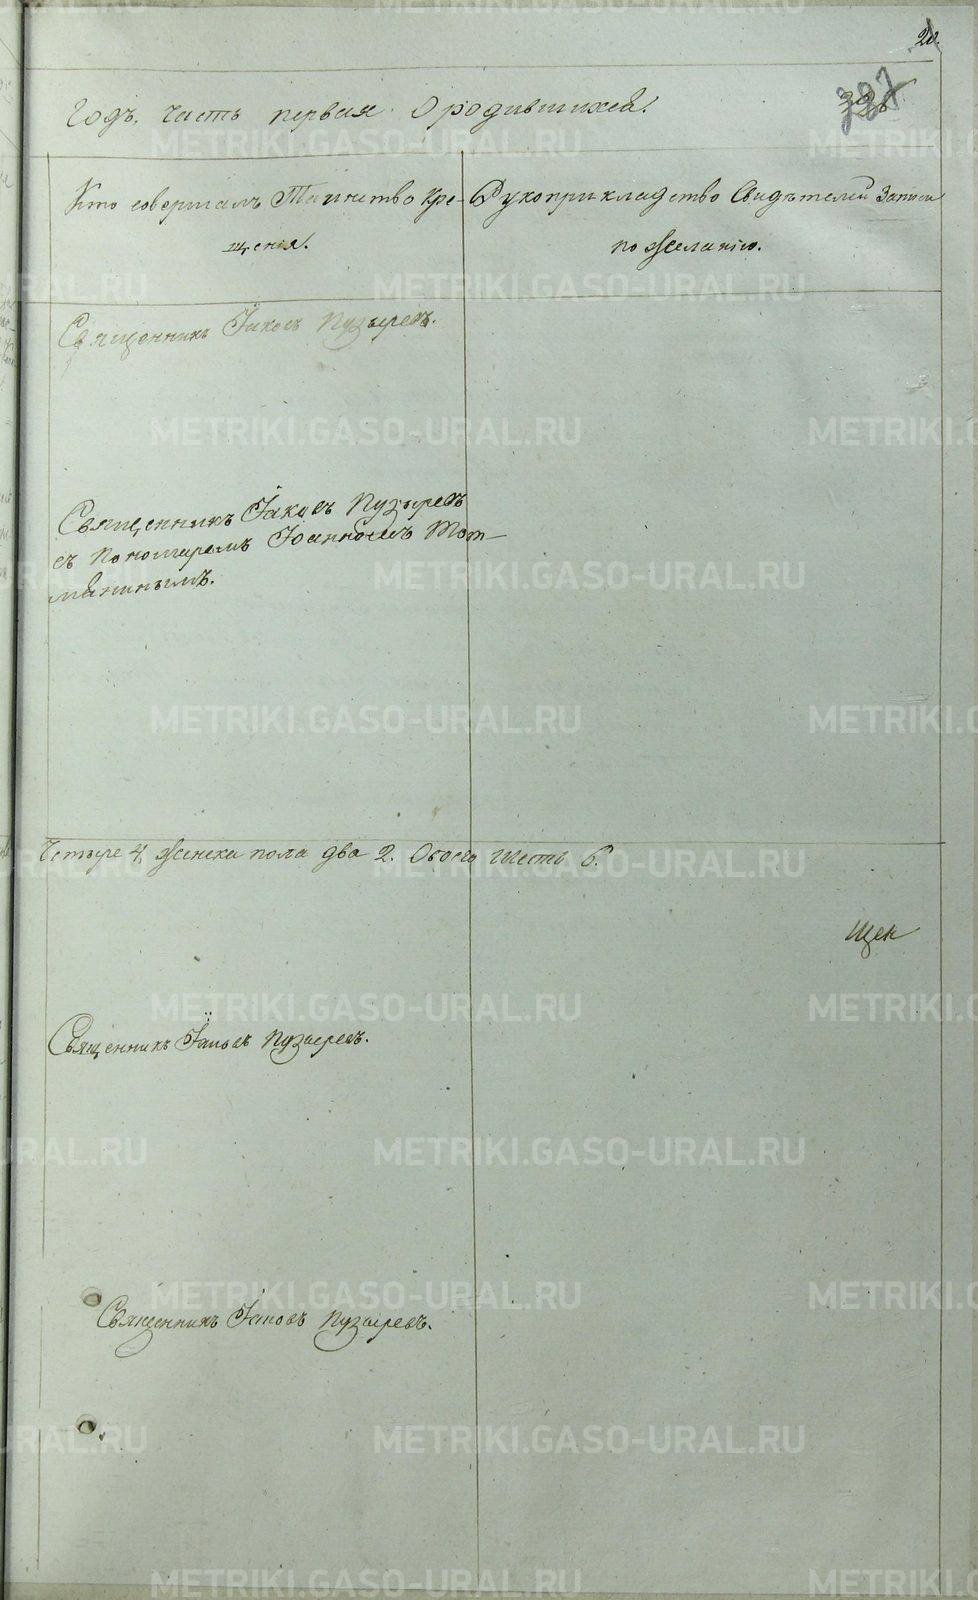 20.
Годъ. Часть первая О родившихся.
Кто совершалъ Таинство Кре- Рукоприкладство Свидѣтелей записи
щенія. по желанію.
Священникъ Іаковъ Пузыревъ.
Священникъ Іаковъ Пузыревъ
съ Пономаремъ Іоанномъ Тот-
мянинымъ.
Четыре 4, женска пола два 2. Обоего шесть 6.
Священникъ Іаковъ Пузыревъ.
Священникъ Іаковъ Пузыревъ.
METRIKI.GASO-URAL.RU